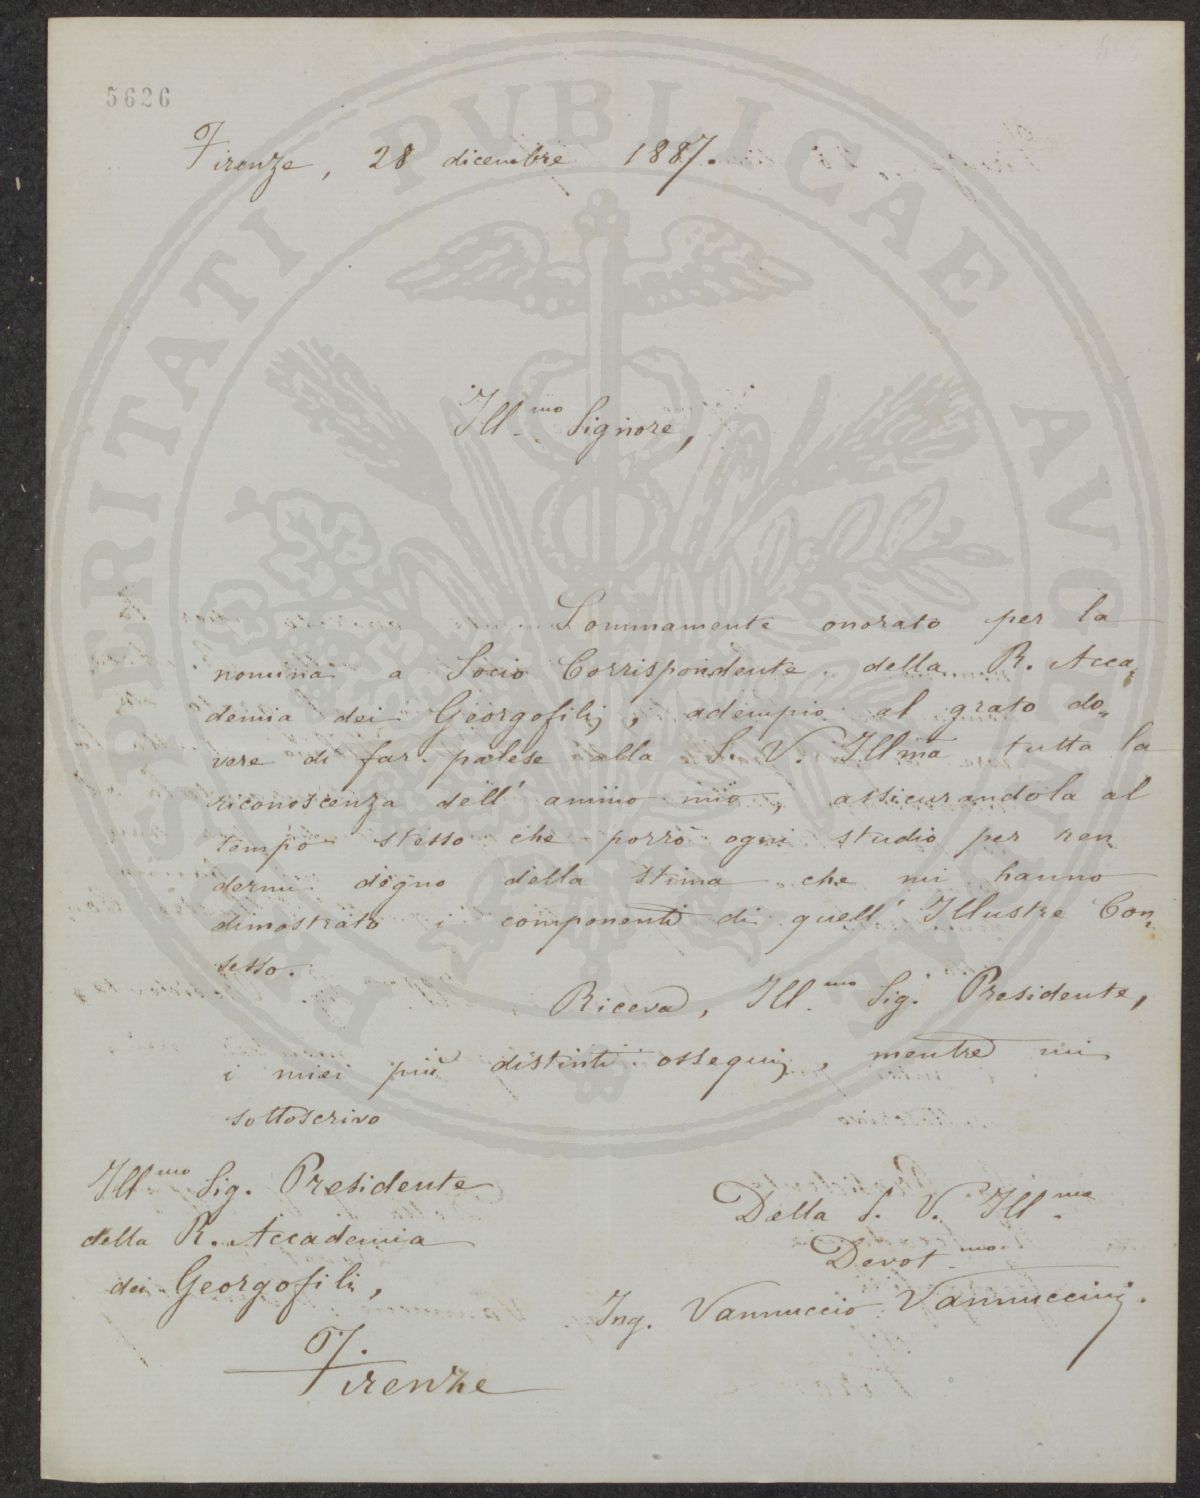 5626
Firenze, 28 dicembre 1887.
Ill.mo Signore,
Sommamente onorato per la
nomina a Socio Corrispondente della R. Acca„
demia dei Georgofilj, adempio al grato do„
vere di far palese alla S. V. Illma tutta la
riconoscenza dell' animo mio, assicurandola al
tempo stesso che porrò ogni studio per ren„
dermi degno della stima che mi hanno
dimostrato i componenti di quell' Illustre Con„
sesso.
Riceva, Ill.mo Sig. Presidente,
i miei più distinti ossequj, mentre mi
sottoscrivo
Della S. V. Ill.ma
Devot.mo
Ing. Vannuccio Vannuccinj.
Ill.mo Sig. Presidente
della R. Accademia
dei Georgofili,
Firenze
PROSPERITATI PVBLICAE AVGENDAE